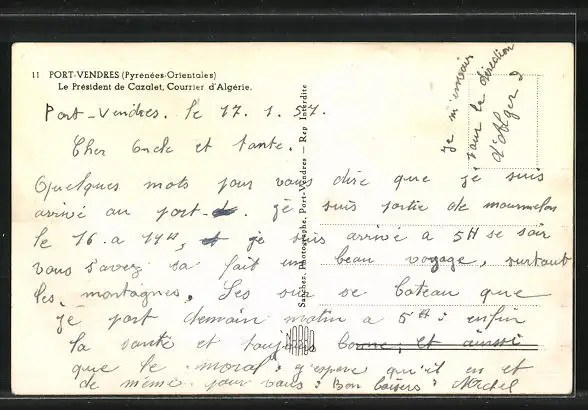 11 PORT-VENDRES (Pyrénées-Orientales)
Le Président de Cazalet, Courrier d'Algérie.
Port-Vendres. le 17. 1. 57.
Cher oncle et tante.
Quelques mots pour vous dire que je suis
arrivé au port. je suis partie de mourmelon
le 16. a 14H, et je suis arrivé a 5H se soir
vous savez sa fait un beau voyage, surtout
les montagnes. Ses sur se bateau que
je part demain matin a 5H: enfin
la santé et toujours bonne; et aussi
que le moral: j'espere qu'il en et
de même pour vous: Bon baisers: Michel
je m'envais
sur la direction
d'Alger
Sanchez, Photographe, Port-Vendres — Rep. Interdite